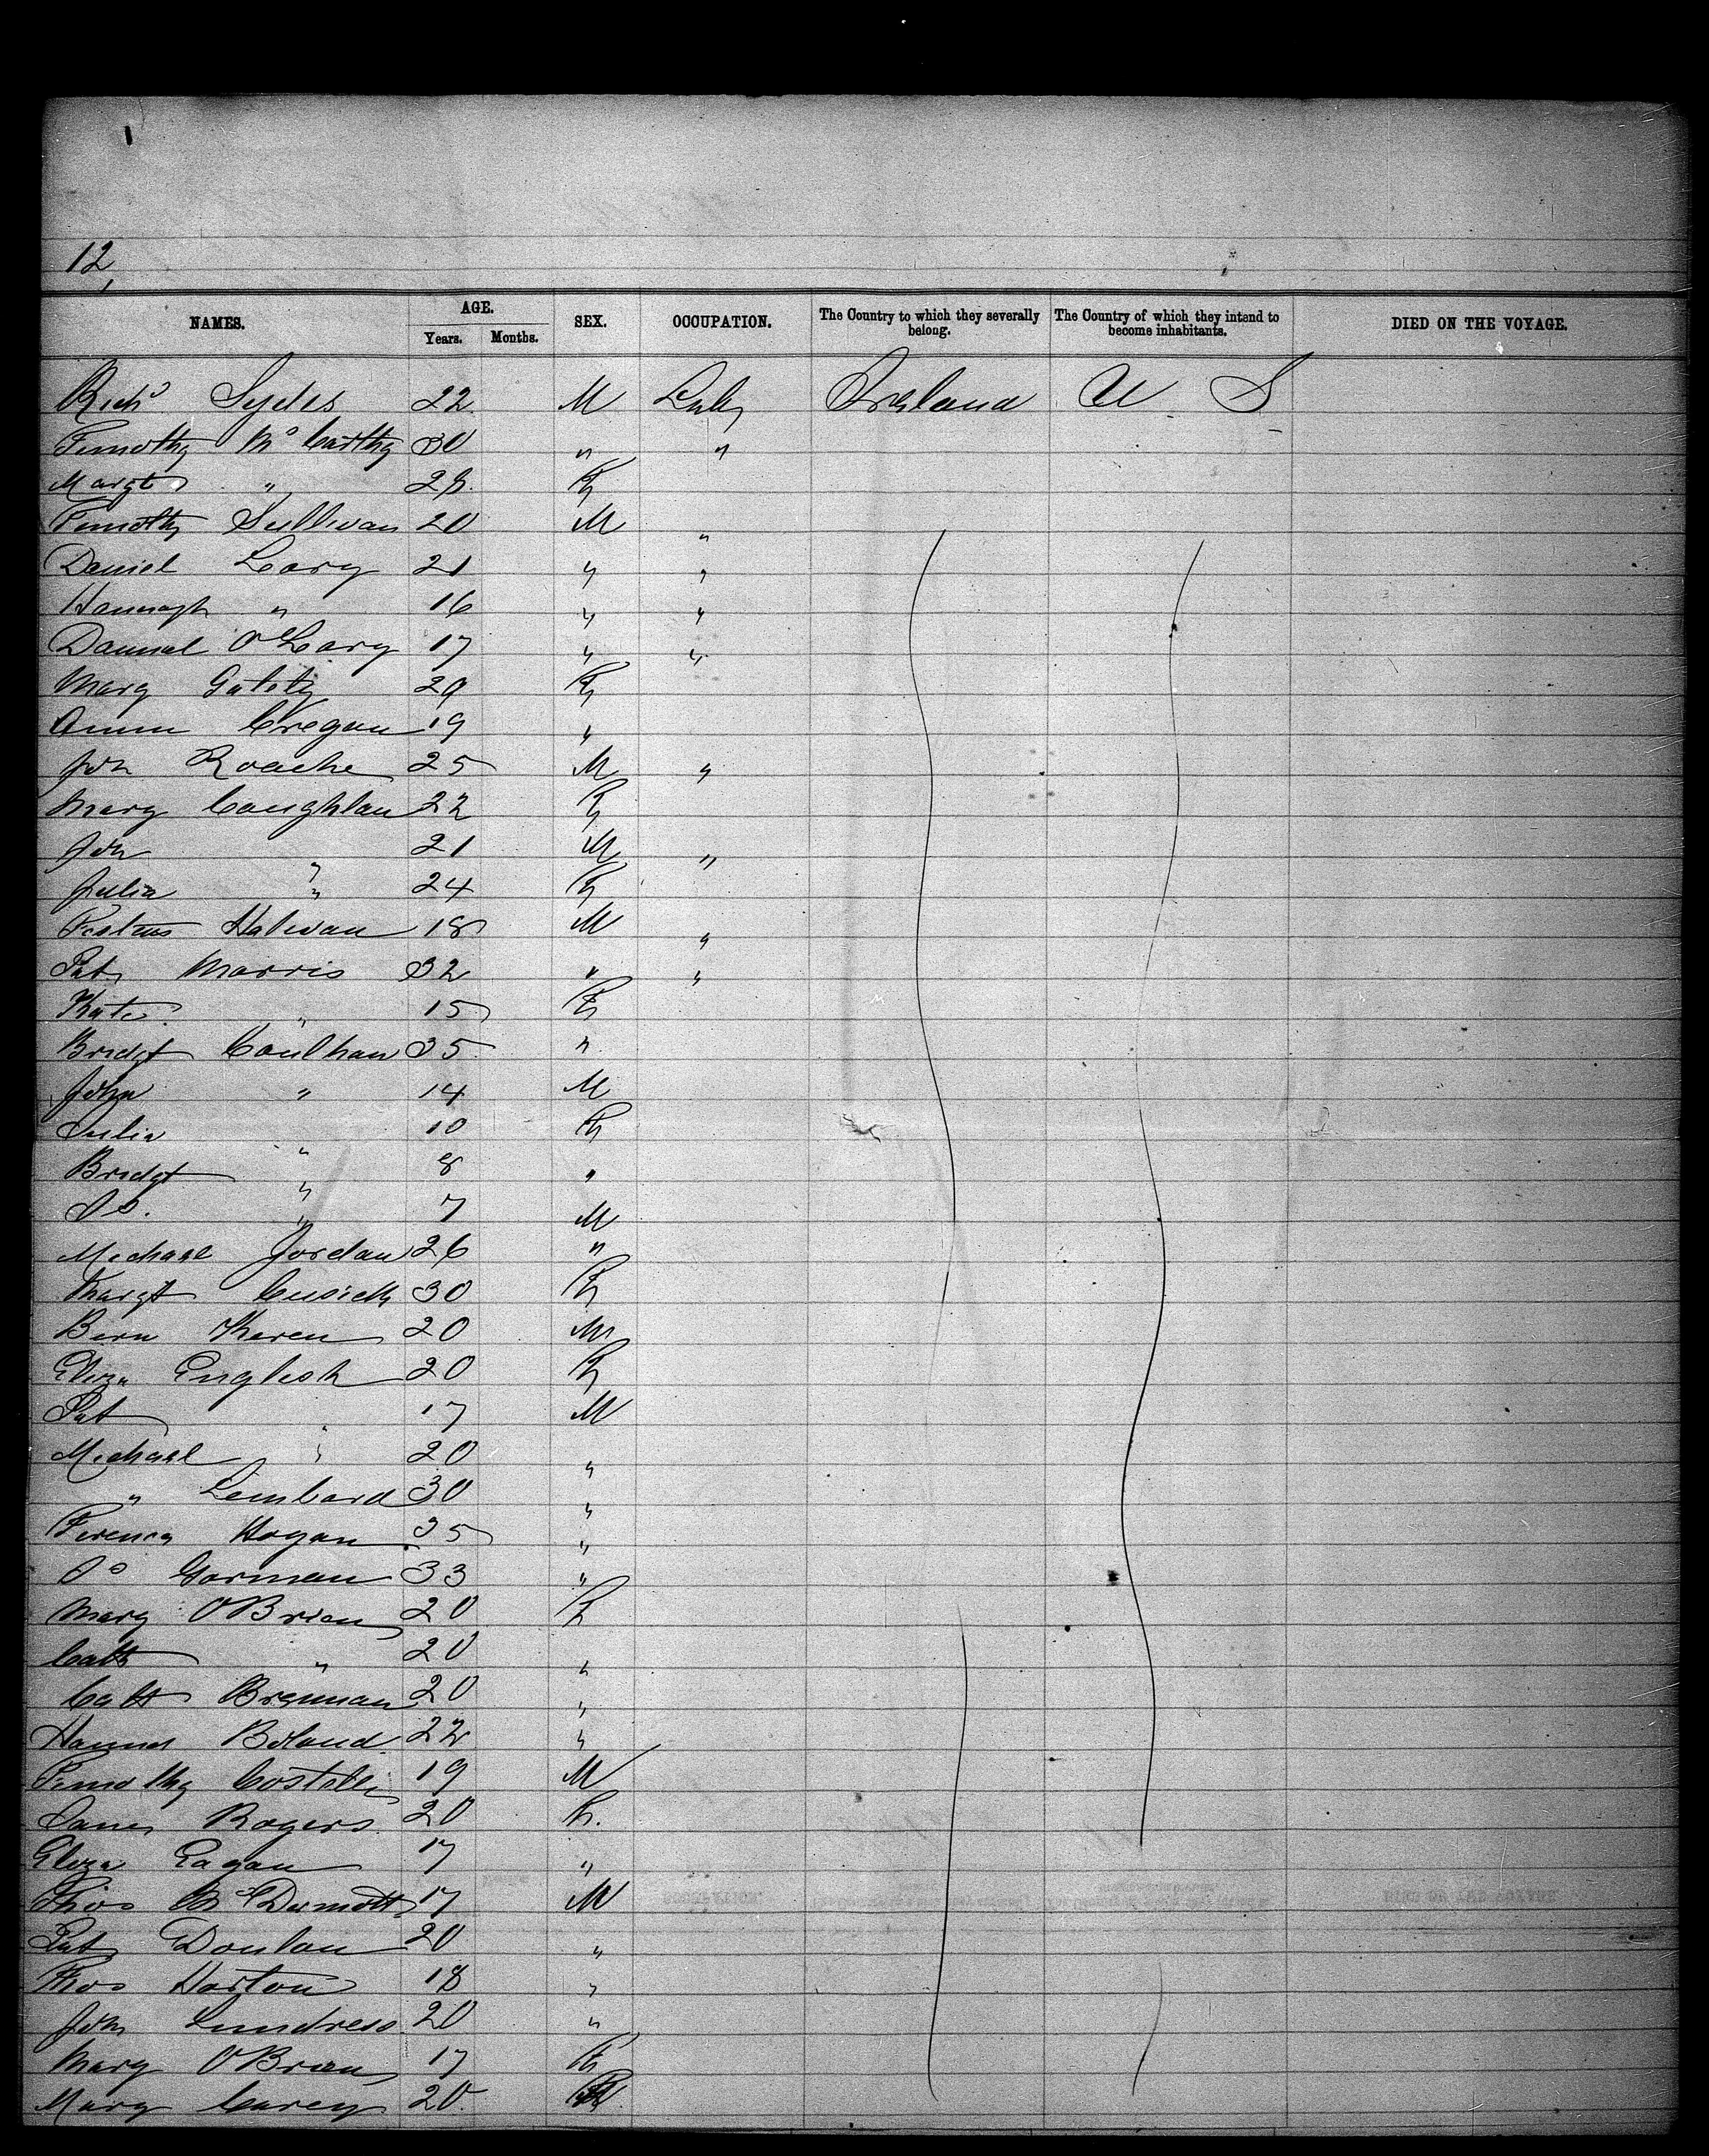 12,
NAMES. AGE. Years. Months. SEX. OCCUPATION. The Country to which they severally belong. The Country of which they intend to become inhabitants. DIED ON THE VOYAGE.
Richd 22 M Ireland U S
Timothy Mc Carthy 30 " "
Margt " 28 F
Timothy Sullivan 20 M "
Daniel Leary 21 " "
Hannagh " 16 " "
Danniel O'Leary 17 " "
Mary 29 F
Cregan 19 "
Jon Roache 25 M "
Mary Coughlan 22 F
Jon " 21 M "
Julia " 24 F
Festus 18 M "
Pat Morris 32 " "
Kate " 15 F
Bridgt Coulhan 35 "
John " 14 M
Julia " 10 F
Bridgt " 8 "
Do. " 7 M
Michael Jordan 26 "
Margt Cusick 30 F
Bern 20 M
Eliza English 20 F
Pat " 17 M
Michael " 20 "
" Lembard 30 "
Hogan 35 "
Do Gorman 33 "
Mary O'Brien 20 F
Cath " 20 "
Cath Brennan 20 "
Boland 22 "
Timothy 19 M
Rogers 20 F.
Eliza Eagan 17 "
Thos McDermott 17 M
Pat Donlan 20 "
Thos Horton 18 "
John 20 "
Mary O'Brien 17 F
Mary Carey 20